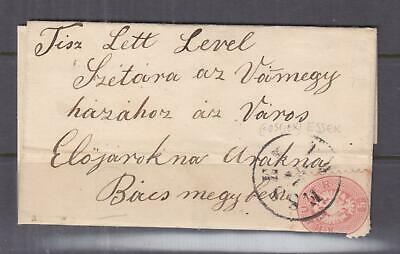 Tisz Lett Level
Szétára az Vármegy
házához az Város
Elöjarokna Urakna
Bácsmegyben
ESSEK